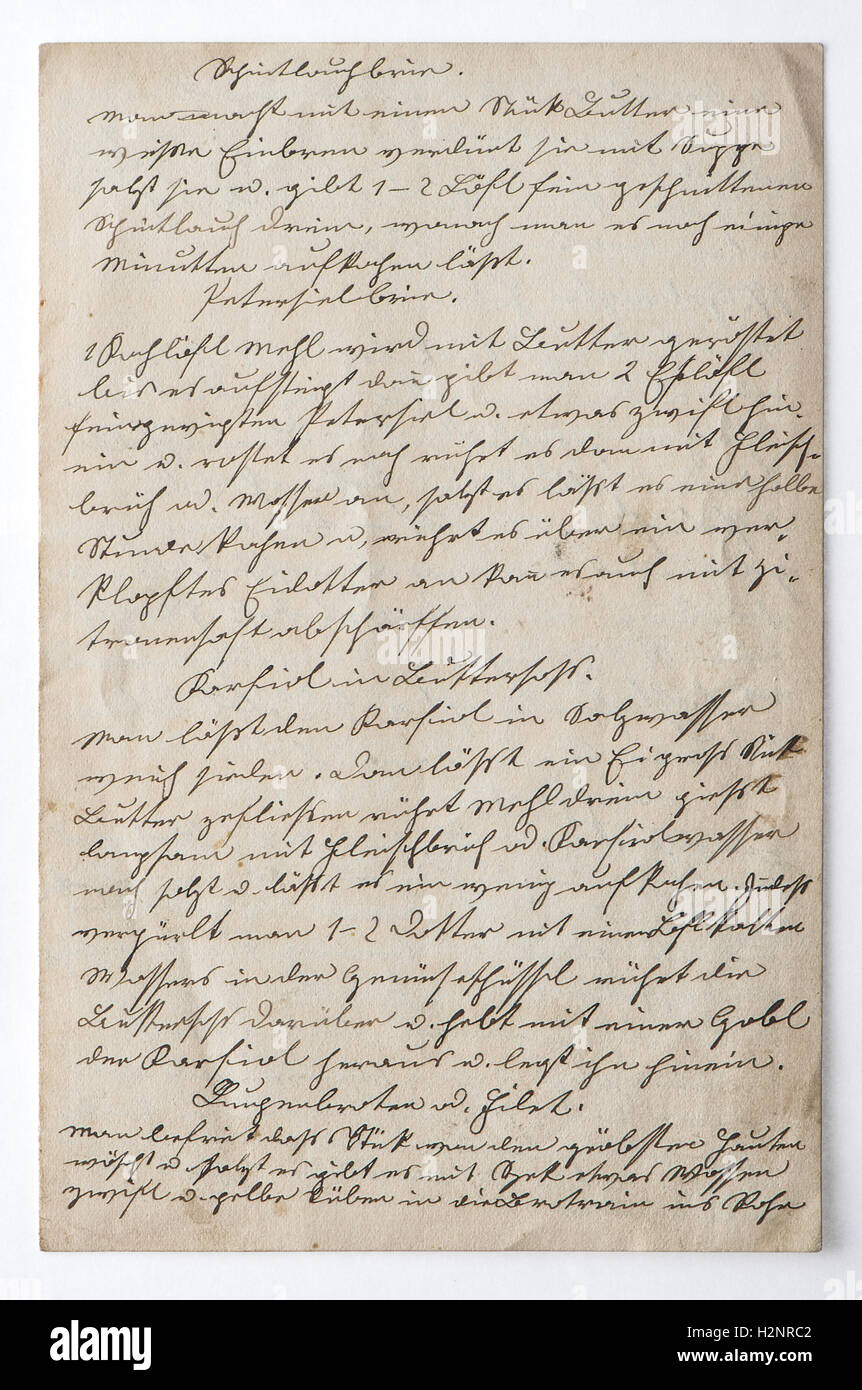 Schnittlauchbrüe.
man macht mit einen Stük Butter eine
weisse Einbren verdünt sie mit Suppe
salzt sie u. gibt 1-2 Löfl fein geschnittenen
Schnittlauch drein, wonach man es noch einige
Minutten aufkochen lässt.
Petersielbrüe.
1 Kochlöfl Mehl wird mit Butter geröstet
bis es aufsteigt dan̄ gibt man 2 Esslöfl
Petersiel u. etwas zwifl hin-
ein u. röstet es noch rührt es dan mit Fleisch-
brüh od. Wasser an, salzt es lässt es eine halbe
Stunde kochen u, rührt es über ein ver-
klopftes Eidotter an kan̄ es auch mit Zi-
tronensaft abschärffen.
Karfiol in Buttersoss.
man lässt den Karfiol in Salzwasser
weich sieden. Dan lässt ein Ei gross Stük
Butter zefliessen rührt Mehl drein giesst
langsam mit Fleischbrüh od. Karfiolwasser
nach salzt u. lässt es ein wenig aufkochen. Indess
man 1-2 Dotter mit einen Löfl kalten
Wassers in der Gemüseschüssel rührt die
Buttersoss darüber u. hebt mit einer Gabl
den Karfiol heraus u. legt ihn hinein.
Lungenbraten od. Filet.
man befreit dass Stük von den gröbsten Häuten
wäscht u. salzt es gibt es mit Spek etwas Wasser
zwifl u gelbe Rüben in die Bratrain ins Rohr
alamy
a
alamy
Image ID: H2NRC2
www.alamy.com